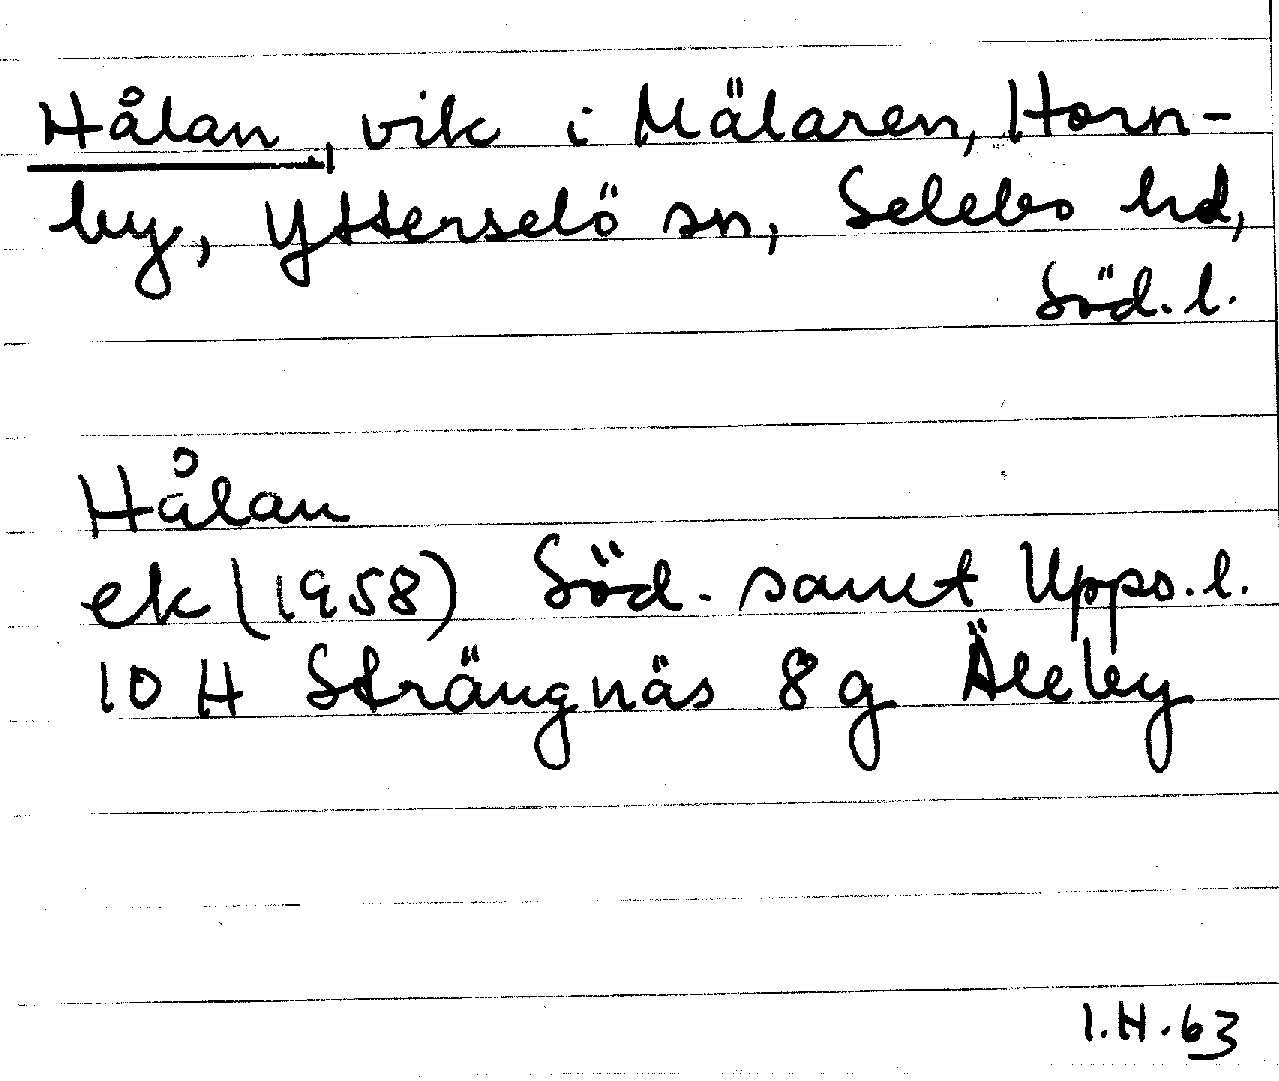 Hålan, vik i Mälaren, Horn-
by, Ytterselö sn, Selebo hd,
Söd. l.
Hålan
ek (1958) Söd. samt Upps. l.
10 H Strängnäs 8 g Äleby
I.H. 63